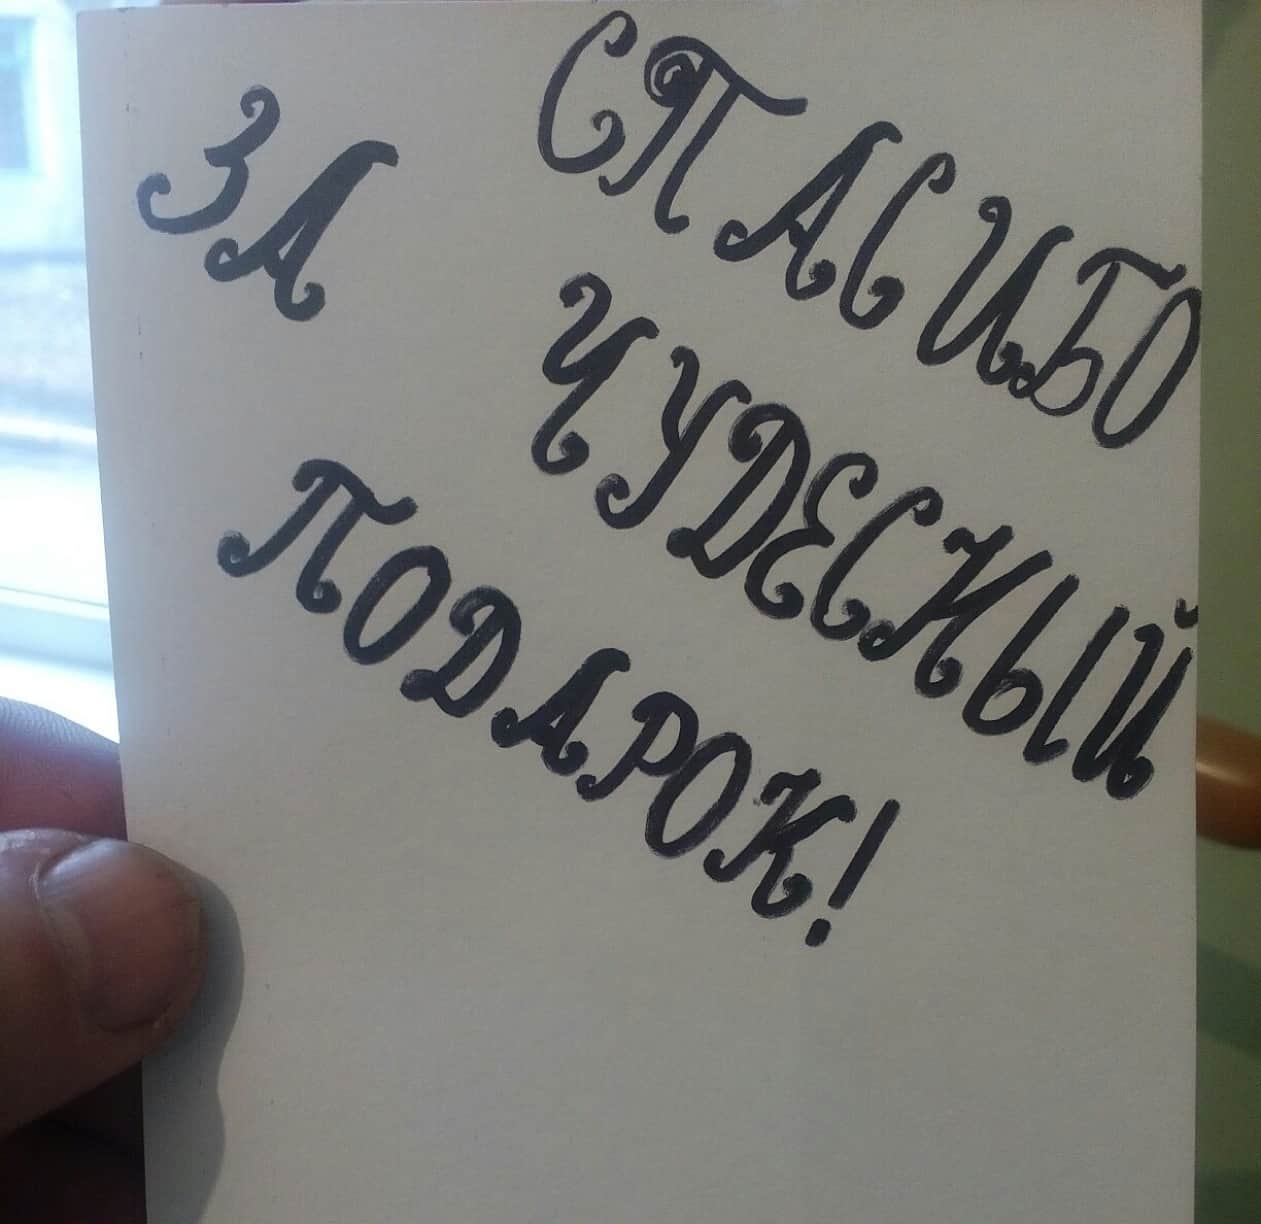 СПАСИБО
ЗА ЧУДЕСНЫЙ
ПОДАРОК!